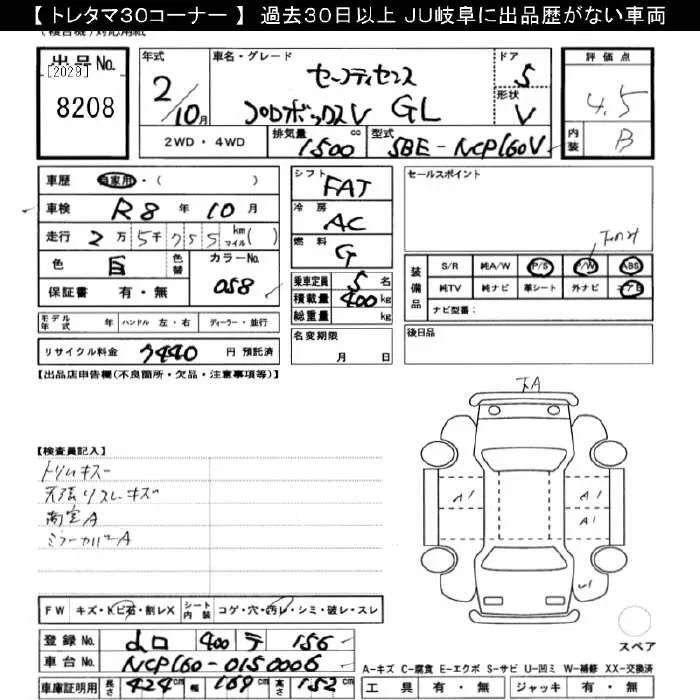 【 トレタマ30コーナー 】 過去30日以上 JU岐阜に出品歴がない車両
(複合機)対応用紙
出品No.
[2029]
8208
年式
2/10月
車名・グレード
セーフティセンス
プロボックスV GL
ドア
5
形状
V
評価点
4.5
内装
B
2WD・4WD
排気量
1500 cc
型式
5BE-NCP160V
車歴 自家用・( )
車検 R8年10月
走行 2万5千755 km マイル( )
色 白 色替 カラーNo. 058
保証書 有・無
シフト FAT
冷房 AC
燃料 G
乗車定員 5名
積載量 400kg
総重量 kg
セールスポイント
装備品
S/R 純A/W P/S P/W ABS
純TV 純ナビ 革シート 外ナビ エアB
ナビ型番:
モデル年式 年 ハンドル 左・右 ディーラー・並行
リサイクル料金 7440 円 預託済
名変期限 月 日
後日品
【出品店申告欄(不良箇所・欠品・注意事項等)】
下A
【検査員記入】
トリムキズ
天張リスレキズ
荷室A
ミラーカバーA
A1 A1
A1
U1
FW キズ・トビ石・割レX シート内装 コゲ・穴・汚レ・シミ・破レ・スレ
スペア
登録No. 400 テ 156
車台No. NCP160-0150006
車庫証明用 長さ 424cm 幅 169cm 高さ 152cm
A-キズ C-腐食 E-エクボ S-サビ U-凹ミ W-補修 XX-交換済
工具 有・無 ジャッキ 有・無